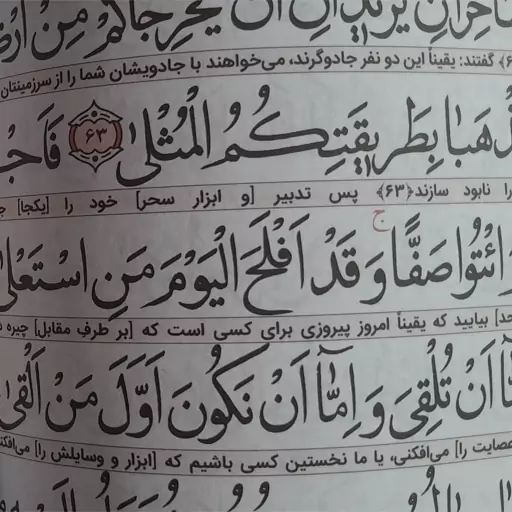 یُریدانِ اَنْ یُخْرِجاکُمْ مِنْ
گفتند: یقیناً این دو نفر جادوگرند، می‌خواهند با جادویشان شما را از سرزمینتان
بِطَریقَتِکُمُ الْمُثْلیٰ ﴿۶۳﴾
را نابود سازند﴿۶۳﴾ پس تدبیر [و ابزار سحر] خود را [یکجا]
ائْتُوا صَفًّا ۚ وَ قَدْ اَفْلَحَ الْیَوْمَ مَنِ اسْتَعْلیٰ
بیایید که یقیناً امروز پیروزی برای کسی است که [بر طرفِ مقابل] چیره
اَنْ تُلْقِیَ وَ اِمّٰٓا اَنْ نَکُونَ اَوَّلَ مَنْ اَلْقیٰ
را] می‌افکنی، یا ما نخستین کسی باشیم که [ابزار و وسایلش را]